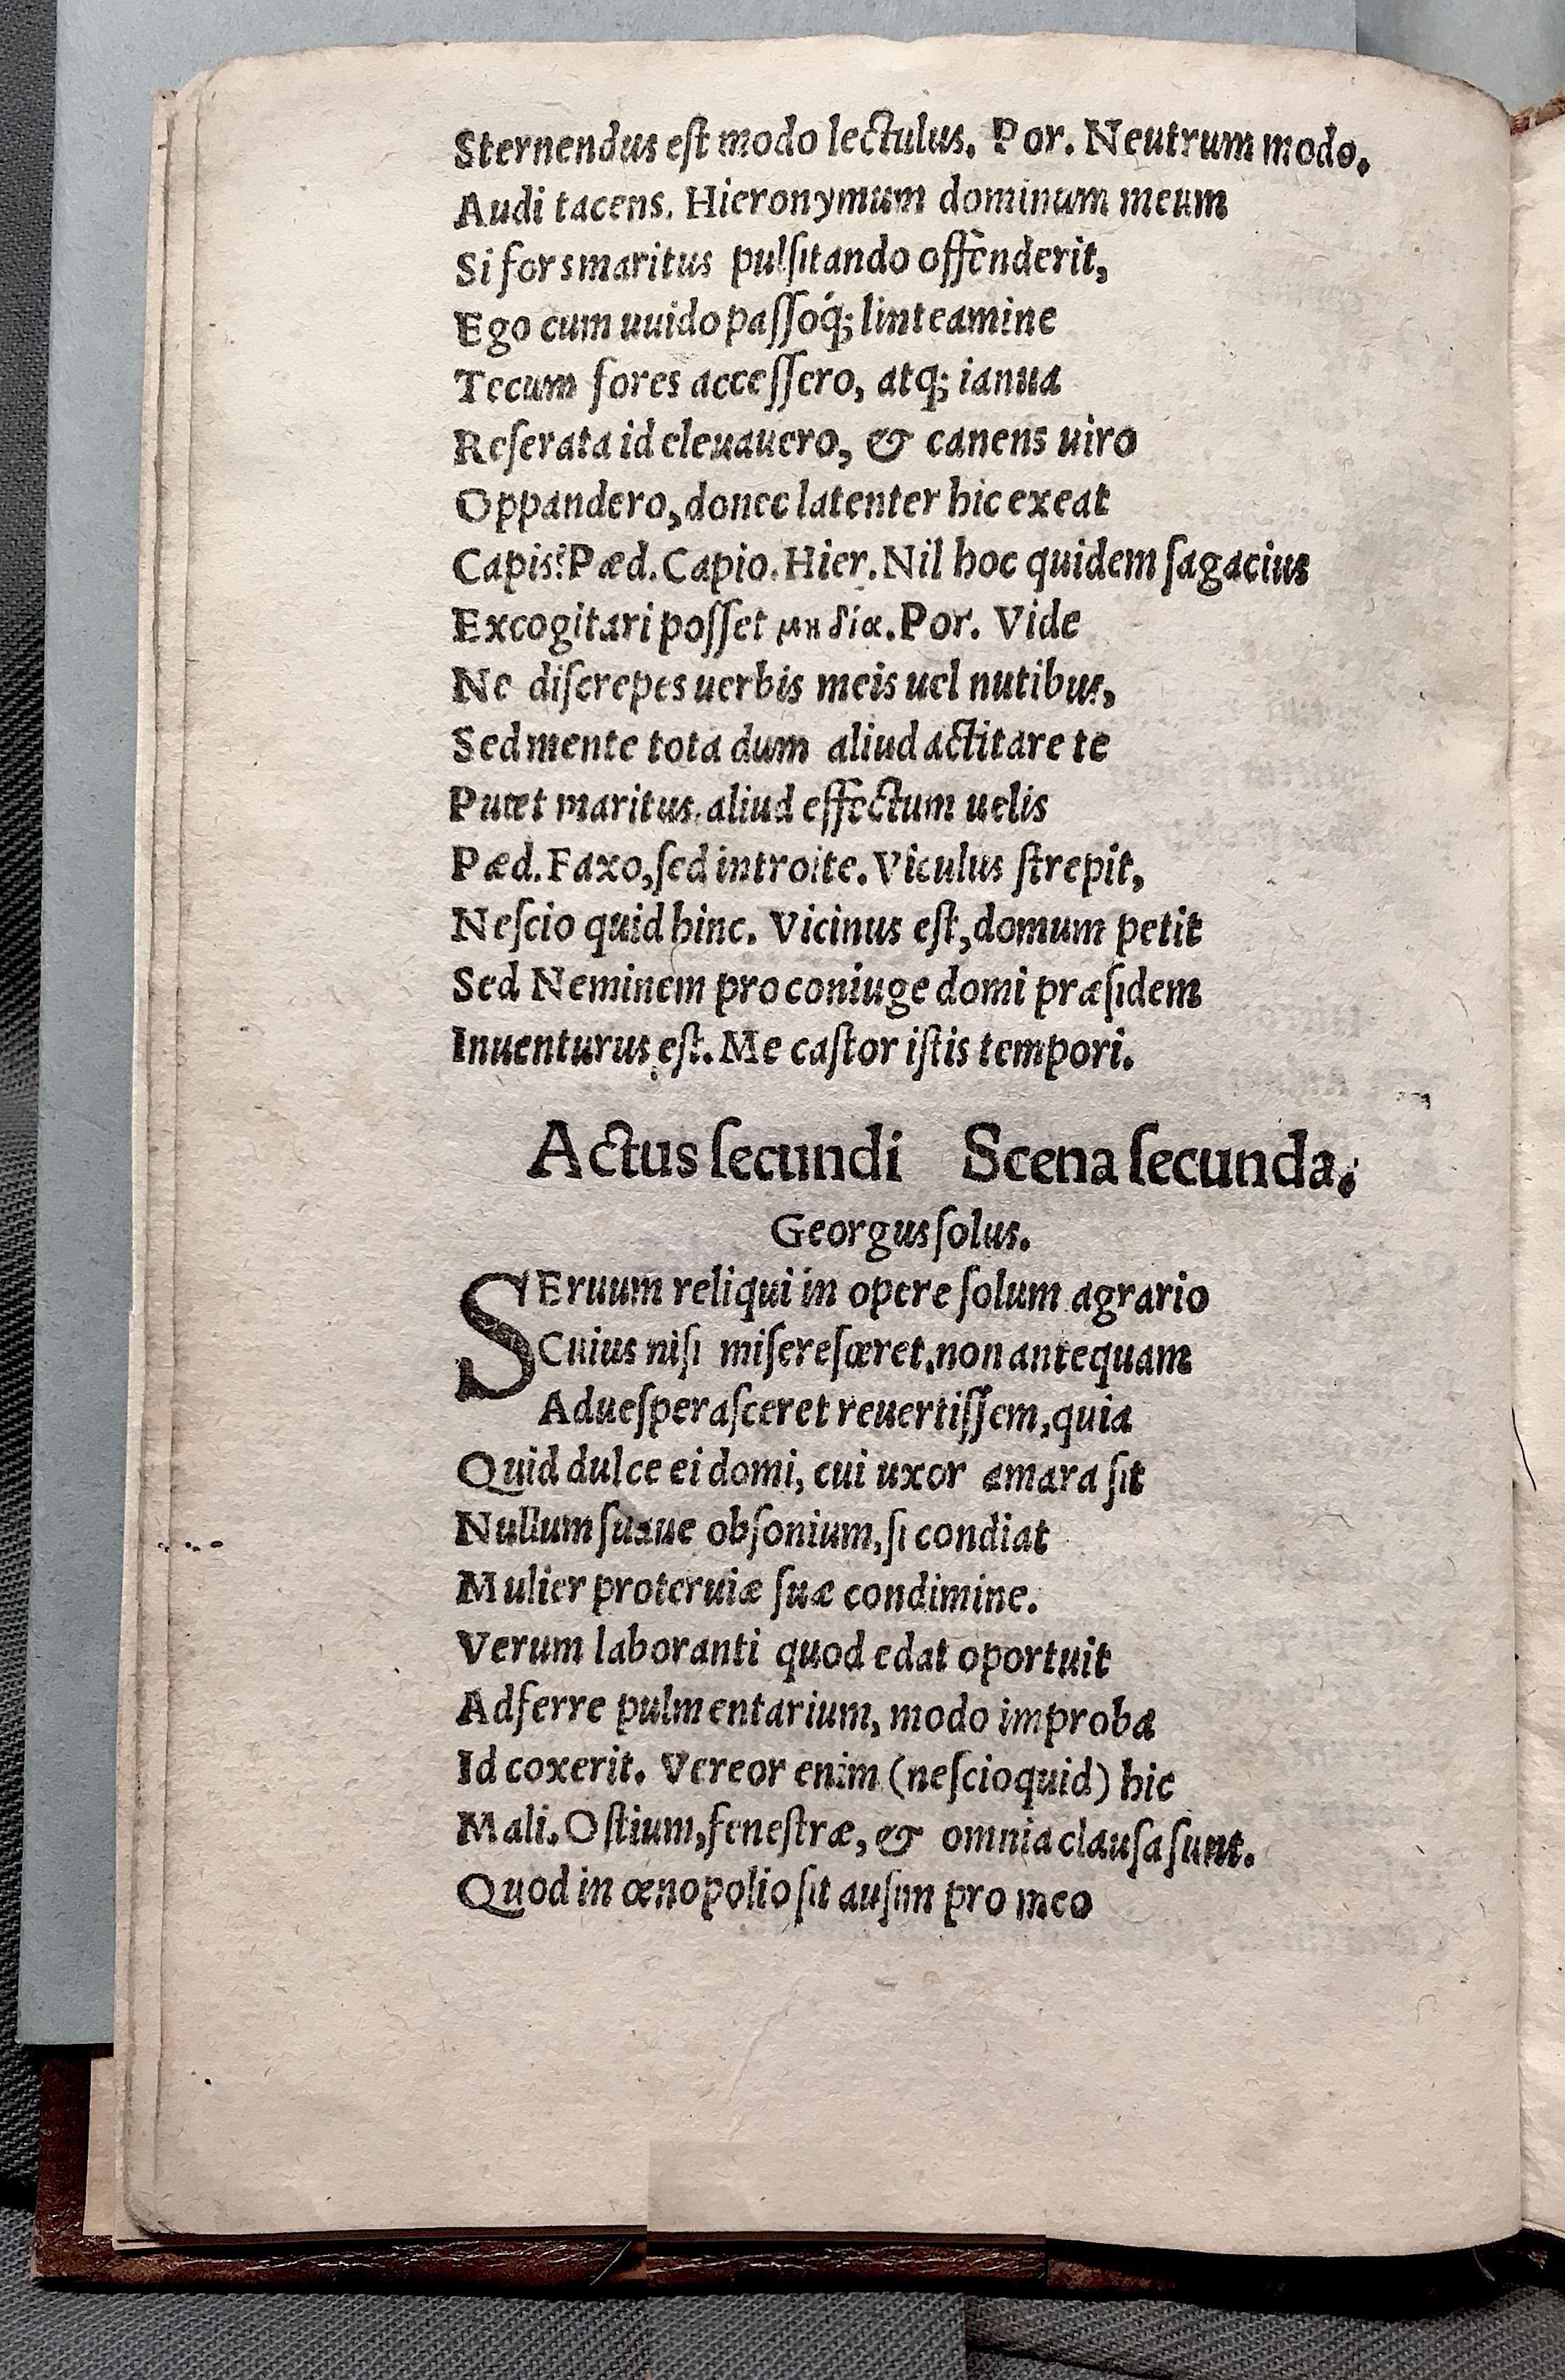 Sternendus eſt modo lectulus. Por. Neutrum modo.
Audi tacens. Hieronymum dominum meum
Si fors maritus pulſitando offenderit,
Ego cum uuido paſſoq́; linteamine
Tecum fores acceſſero, atq; ianua
Reſerata id eleuauero, & canens uiro
Oppandero, donec latenter hic exeat
Capis? Pæd. Capio. Hier. Nil hoc quidem ſagacius
Excogitari poſſet μη δία. Por. Vide
Ne diſcrepes uerbis meis uel nutibus,
Sed mente tota dum aliud actitare te
Putet maritus, aliud effectum uelis
Pæd. Faxo, ſed introite. Viculus ſtrepit,
Neſcio quid hinc. Vicinus eſt, domum petit
Sed Neminem pro coniuge domi præſidem
Inuenturus eſt. Me caſtor iſtis tempori.
Actus ſecundi Scena ſecunda.
Georgus ſolus.
SEruum reliqui in opere ſolum agrario
Cuius niſi miſereſceret, non antequam
Adueſperaſceret reuertiſſem, quia
Quid dulce ei domi, cui uxor amara ſit
Nullum ſuaue obſonium, ſi condiat
Mulier proteruiæ ſuæ condimine.
Verum laboranti quod edat oportuit
Adferre pulmentarium, modo improba
Id coxerit. Vereor enim (neſcioquid) hic
Mali. Oſtium, feneſtræ, & omnia clauſa ſunt.
Quod in œnopolio ſit auſim pro meo